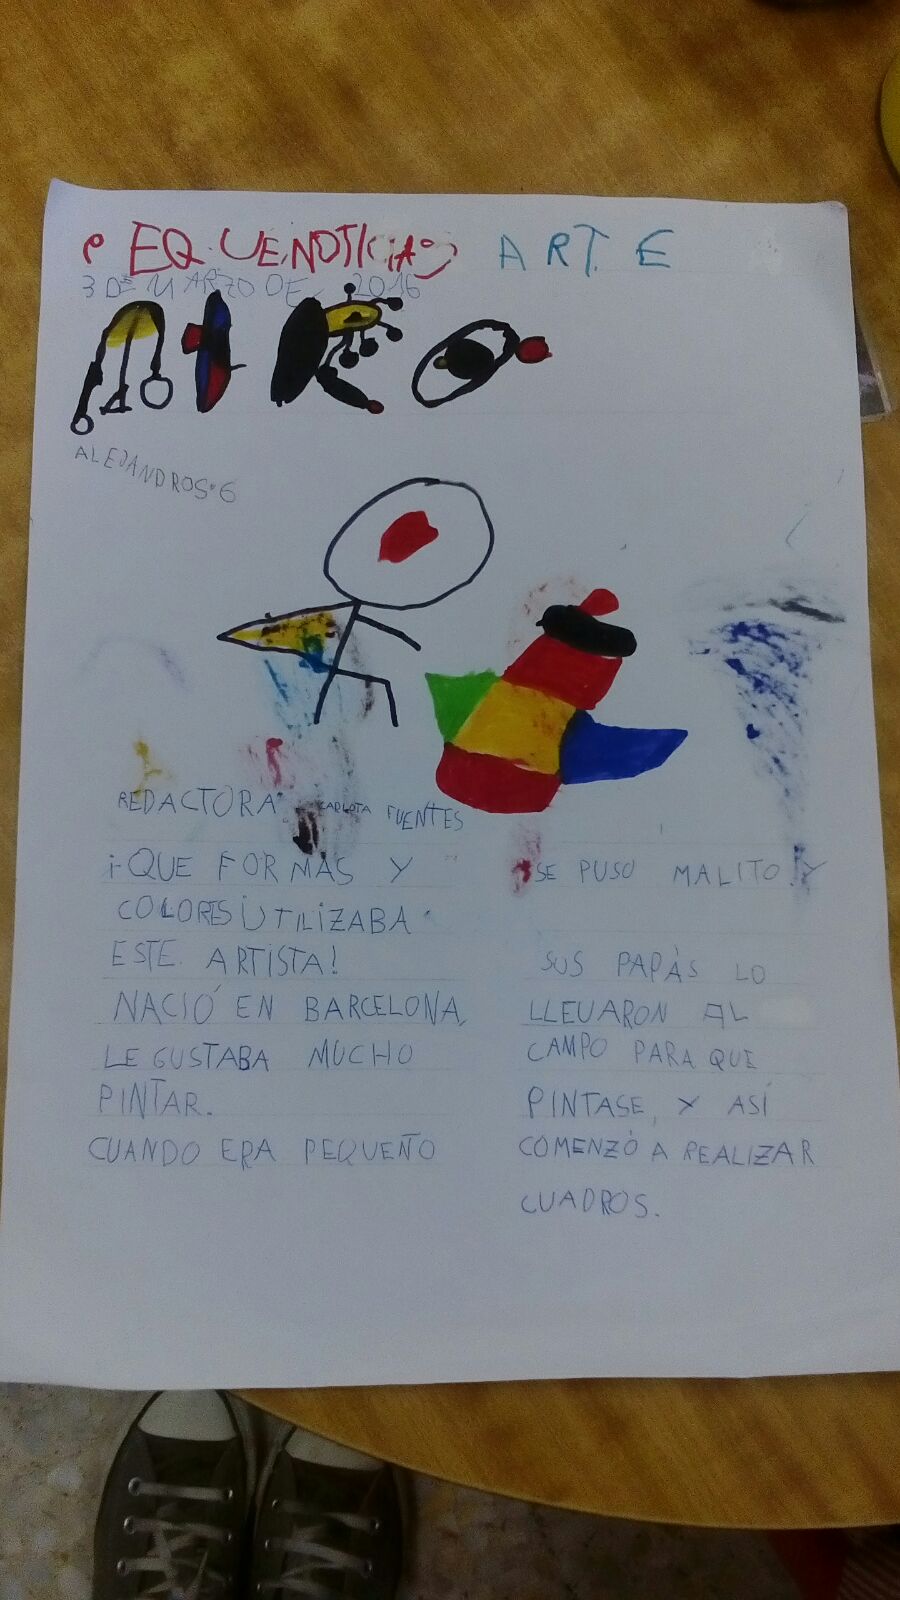 PEQUENOTICIAS ARTE
3 DE MARZO DE 2016
MIRO
ALEJANDRO S. 6
REDACTORA CARLOTA FUENTES
¡QUE FORMAS Y
COLORES UTILIZABA
ESTE ARTISTA!
NACIÓ EN BARCELONA,
LE GUSTABA MUCHO
PINTAR.
CUANDO ERA PEQUEÑO
SE PUSO MALITO Y
SUS PAPÀS LO
LLEVARON AL
CAMPO PARA QUE
PINTASE, Y ASÍ
COMENZÓ A REALIZAR
CUADROS.